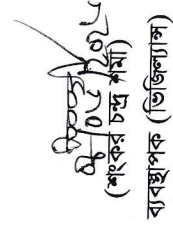 (শংকর চন্দ্র শর্মা)
ব্যবস্থাপক (ভিজিল্যান্স)